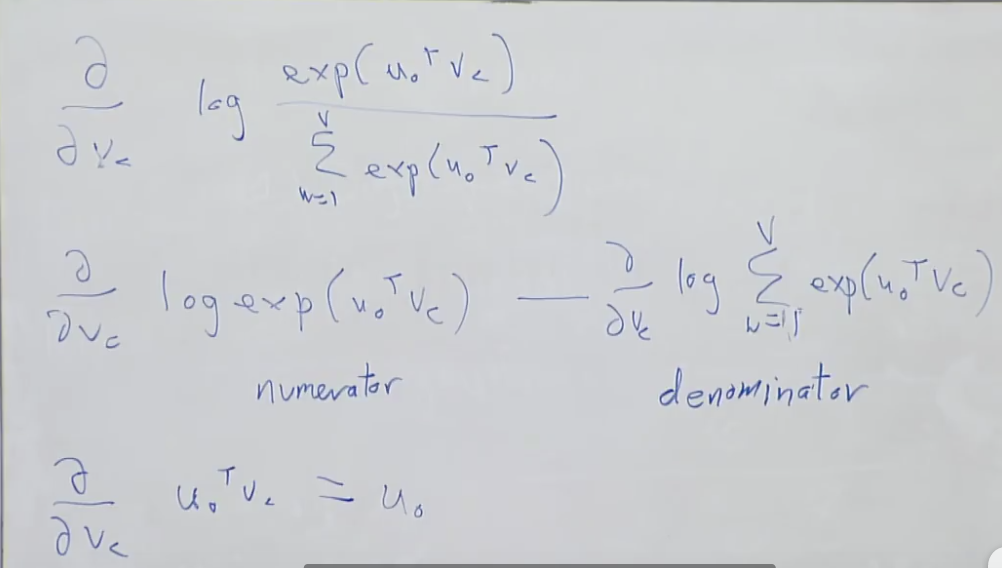 ∂/∂v_c log exp(u_o^T v_c) / ∑_{w=1}^{V} exp(u_o^T v_c)
∂/∂v_c log exp(u_o^T v_c) — ∂/∂v_c log ∑_{w=1}^{V} exp(u_o^T v_c)
numerator denominator
∂/∂v_c u_o^T v_c = u_o